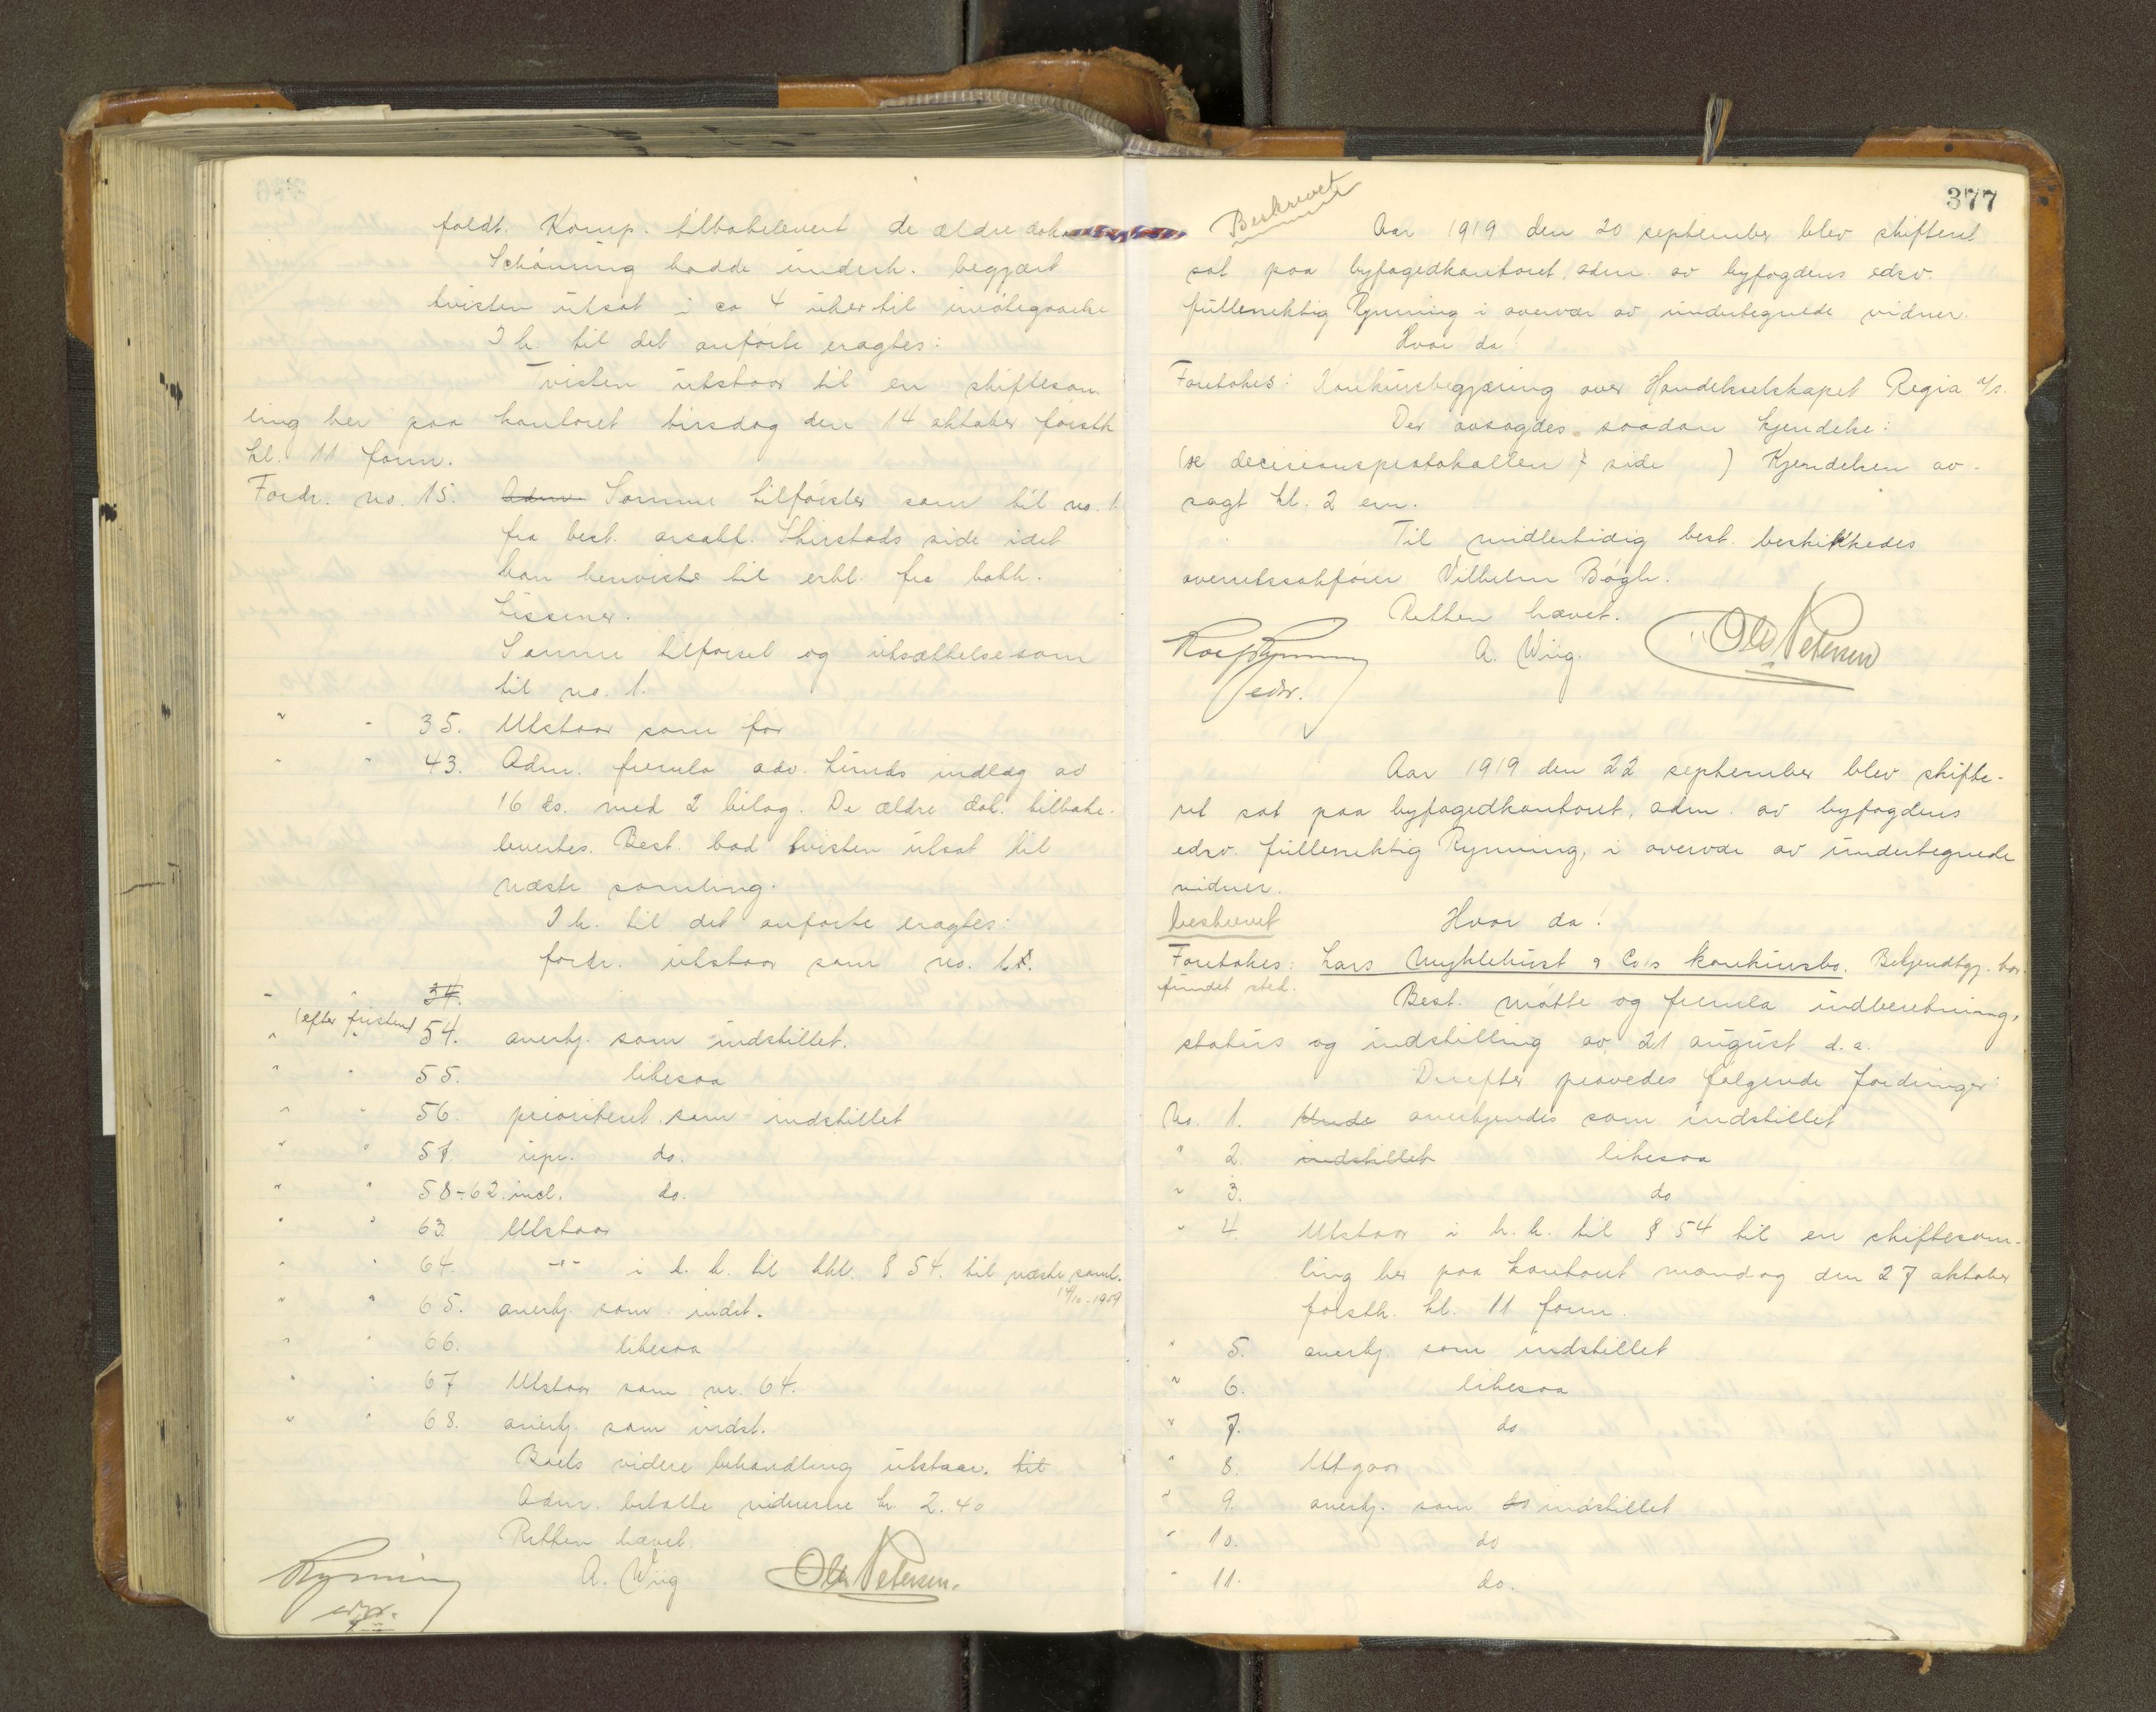 foldt. Komp. tilbakelevert de ældre dok
Schöning hadde underh. begjært
tvisten utsat i ca 4 uker til imøtegaaelse
I h. til det anførte eragtes:
Tvisten utstaar til en skiftesam
ling her paa kontoret tirsdag den 14 oktober førsth
kl. 11 form.
Fordr. no. 15. Adm. Samme tilførsler som til no. 1.
fra best. orsakf. side idet
han henviste til erkl. fra bokh.
Samme tilførsel og utsættelse som
til no. 1.
" - 35. Utstaar som før
" " 43. Adm. fremla adv. Lunds indlæg av
16 ds. med 2 bilag. De ældre dok. tilbake-
levertes. Best. bad tvisten utsat til
næste samling.
I h. til det anførte eragtes:
fordr. utstaar som no. 1.
- " 34.
(efter fristen)
" " 54. anerkj. som indstillet.
" " 55. likesaa
" " 56. prioriteret som indstillet
" " 57. upr. do.
" " 58-62 incl. do.
" " 63. Utstaar
" " 64. -"- i h. h. til kkl. § 54. til næste saml.
14/10-1919
" " 65. anerkj. som indst.
" " 66. likesaa
" " 67 Utstaar som nr. 64.
" " 68. anerkj. som indst.
Boets videre behandling utstaar. til
Adm. betalte vidnerne kr. 2.40
Retten hævet.
Rynning A. Wiig Ole Petersen.
edsv.
377
Beskrevet
Aar 1919 den 20 september blev skifteret
sat paa byfogedkontoret, adm. av byfogdens edsv.
fuldmektig Rynning i overvær av undertegnede vidner.
Hvor da!
Foretokes: Konkursbegjæring over Handelsselskapet Regia a/s.
Der avsagdes saadan kjendelse:
(se decisionsprotokollen side ) Kjendelsen av-
sagt kl. 2 em.
Til midlertidig best. beskikkedes
overretssakfører Vilhelm Bøgh.
Retten hævet.
Rynning A. Wiig. Ole Petersen
edsv.
Aar 1919 den 22 september blev skifte-
ret sat paa byfogedkontoret, adm. av byfogdens
edsv. fuldmektig Rynning, i overvær av undertegnede
vidner.
beskrevet Hvor da!
Foretokes: Lars Myklebust & Co's konkursbo. Bekjendtgj. har
fundet sted.
Best. møtte og fremla indberetning,
status og indstilling av 21 august d.a.
Derefter prøvedes følgende fordringer:
No. 1. anerkjendes som indstillet
" 2. indstillet likesaa
" 3. do
" 4. Utstaar i h. h. til § 54 til en skiftesam-
ling her paa kontoret mandag den 27 oktober
førsth. kl. 11 form.
" 5. anerkj. som indstillet
" 6. likesaa
" 7. do
" 8. Utgaar
" 9. anerkj. som do indstillet
" 10. do
" 11. do.